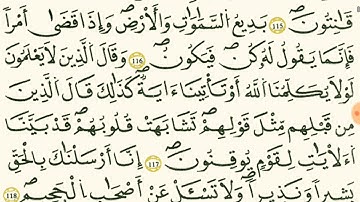 قَٰنِتُونَ ۝١١٥ بَدِيعُ السَّمَٰوَٰتِ وَالْأَرْضِ وَإِذَا قَضَىٰ أَمْرًا
فَإِنَّمَا يَقُولُ لَهُ كُن فَيَكُونُ ۝١١٦ وَقَالَ الَّذِينَ لَا يَعْلَمُونَ
لَوْلَا يُكَلِّمُنَا اللَّهُ أَوْ تَأْتِينَا ءَايَةٌ كَذَٰلِكَ قَالَ الَّذِينَ
مِن قَبْلِهِم مِّثْلَ قَوْلِهِمْ تَشَٰبَهَتْ قُلُوبُهُمْ قَدْ بَيَّنَّا
الْأَيَٰتِ لِقَوْمٍ يُوقِنُونَ ۝١١٧ إِنَّا أَرْسَلْنَٰكَ بِالْحَقِّ
بَشِيرًا وَنَذِيرًا وَلَا تَسْـَٔلْ عَنْ أَصْحَٰبِ الْجَحِيمِ ۝١١٨